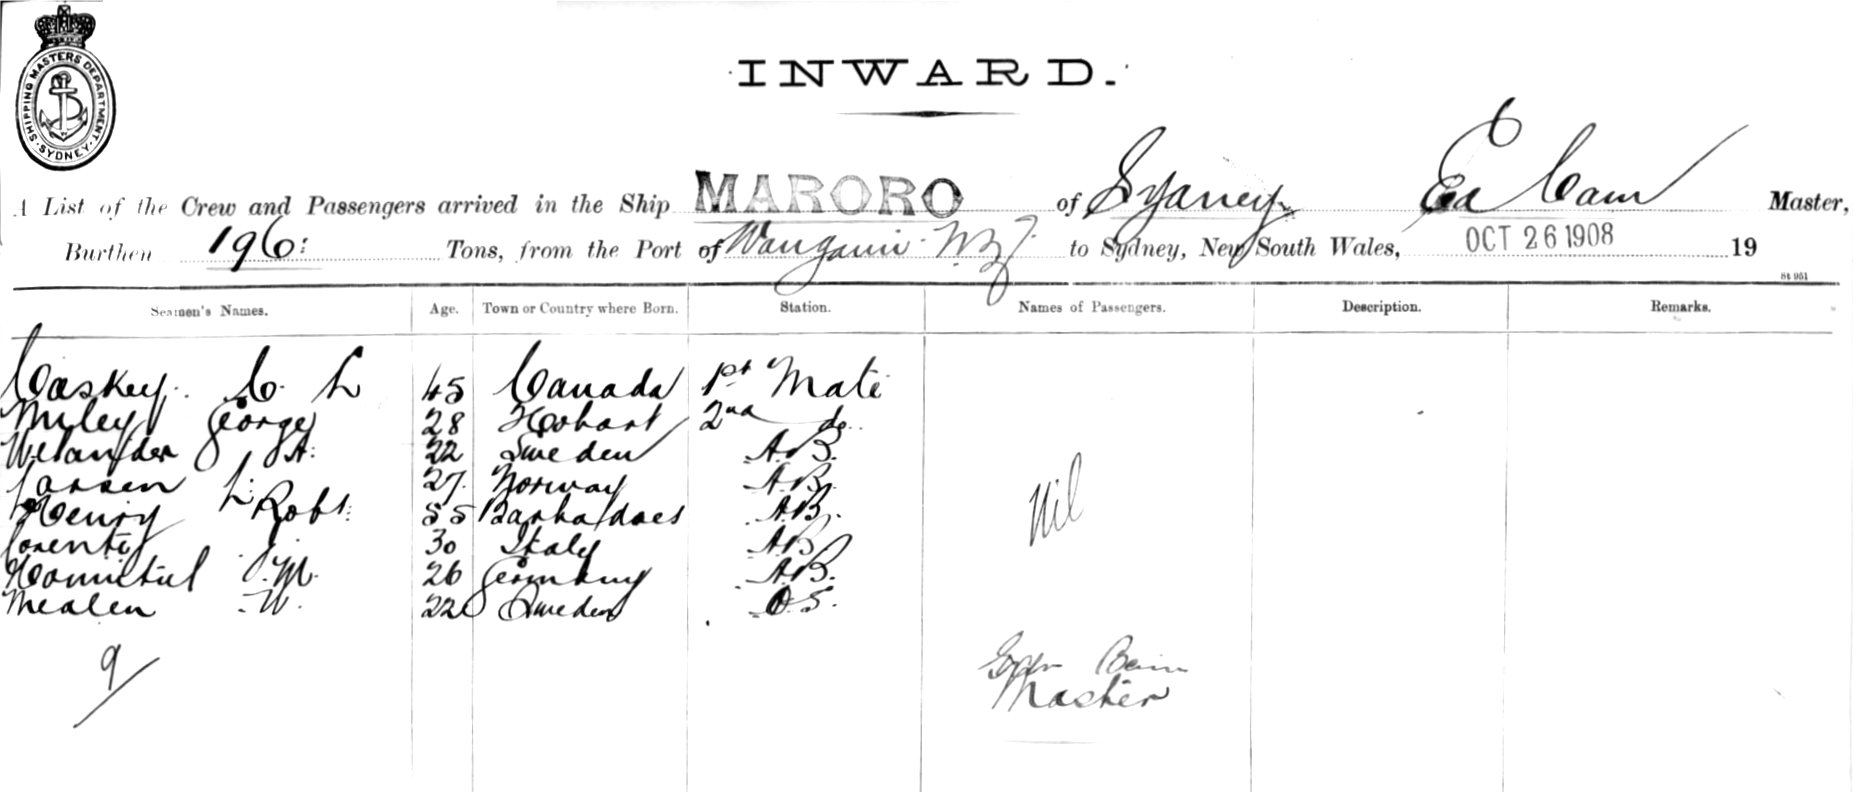 SHIPPING MASTERS DEPARTMENT. SYDNEY
INWARD.
A List of the Crew and Passengers arrived in the Ship MARORO of Sydney Master,
Burthen 196 Tons, from the Port of Wanganui N.Z. to Sydney, New South Wales, OCT 26 1908 19
St 951
Seamen's Names. Age. Town or Country where Born. Station. Names of Passengers. Description. Remarks.
Caskey. C. L 45 Canada 1st Mate
Miley George 28 Hobart 2nd do.
Welander A. 22 Sweden A.B.
Larsen L. 27 Norway A.B.
Henry Robt. 55 Barbadoes A.B.
30 Italy A.B
J.M. 26 Germany A.B.
Mealen W. 22 Sweden O.S.
Nil
9
Master